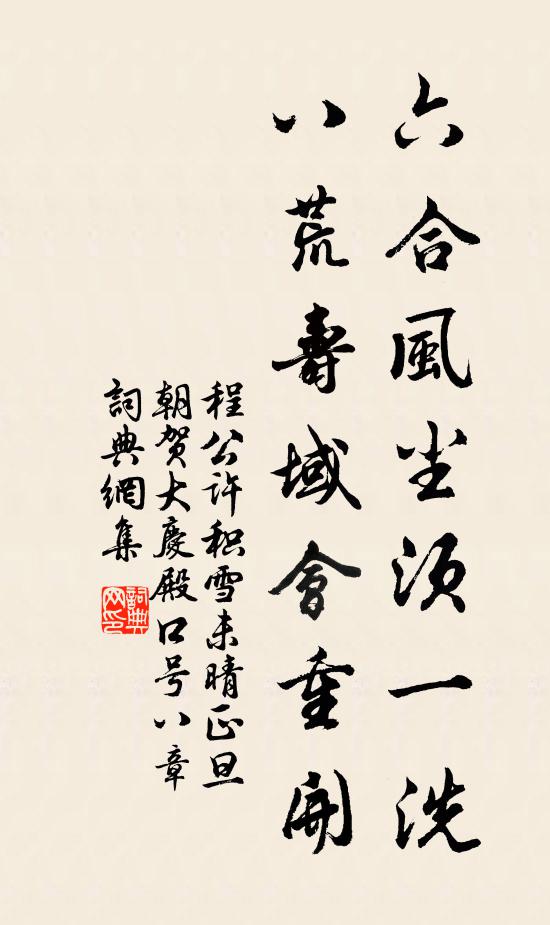 六合風尘須一洗
八荒壽域會重開
程公许积雪未晴正旦
朝贺大慶殿口号八章
詞典網集
詞典网印